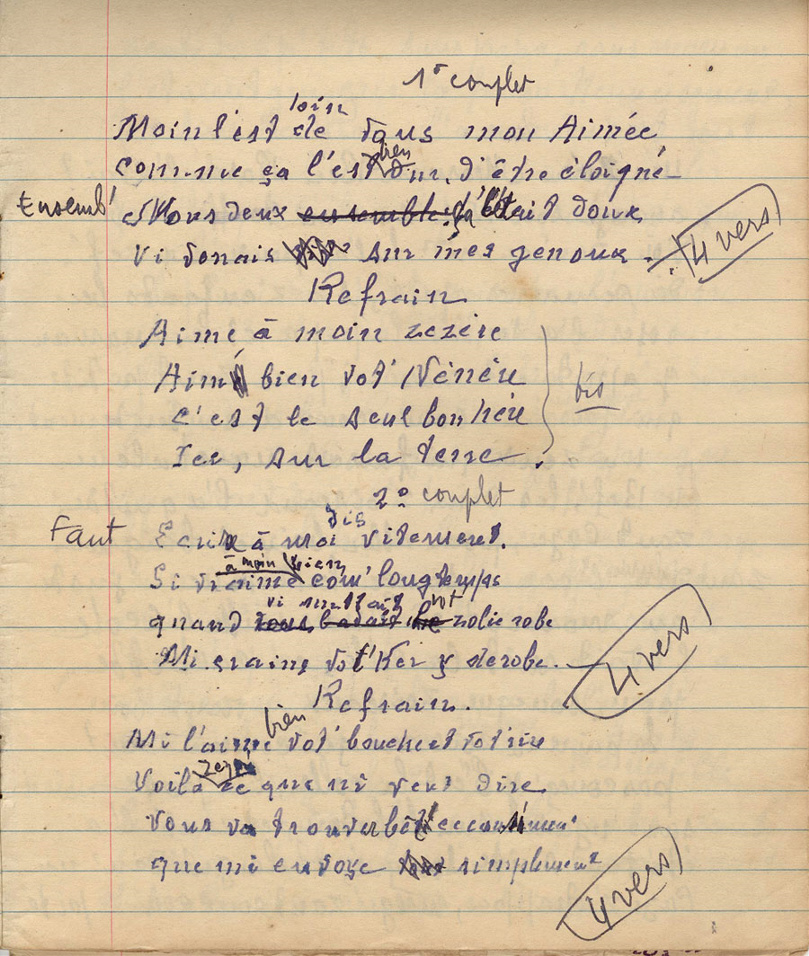 1er couplet
Moin l'est loin de vous mon Aimée
comme ça l'est bien dur, d'être éloigné
Ensemb' Nous deux ensemble ça l'était doux
Vi venais sur mes genoux. 4 vers
Refrain
Aime à moin zezère
Aimé bien vot' Nénère
C'est le seul bonhère
Ice, sur la terre. bis
2e couplet
Faut Ecrire à moi dis vitement.
Si vi aime à moin bien com' longtemps
quand vi mettait vot zolie robe
Mi crains vot' Ker y derobe. 4 vers
Refrain.
Mi l'aime bien vot' bouche et vot' rire
Voila ce que mi veut dire
Vous va trouver
que mi envoye simplement 4 vers